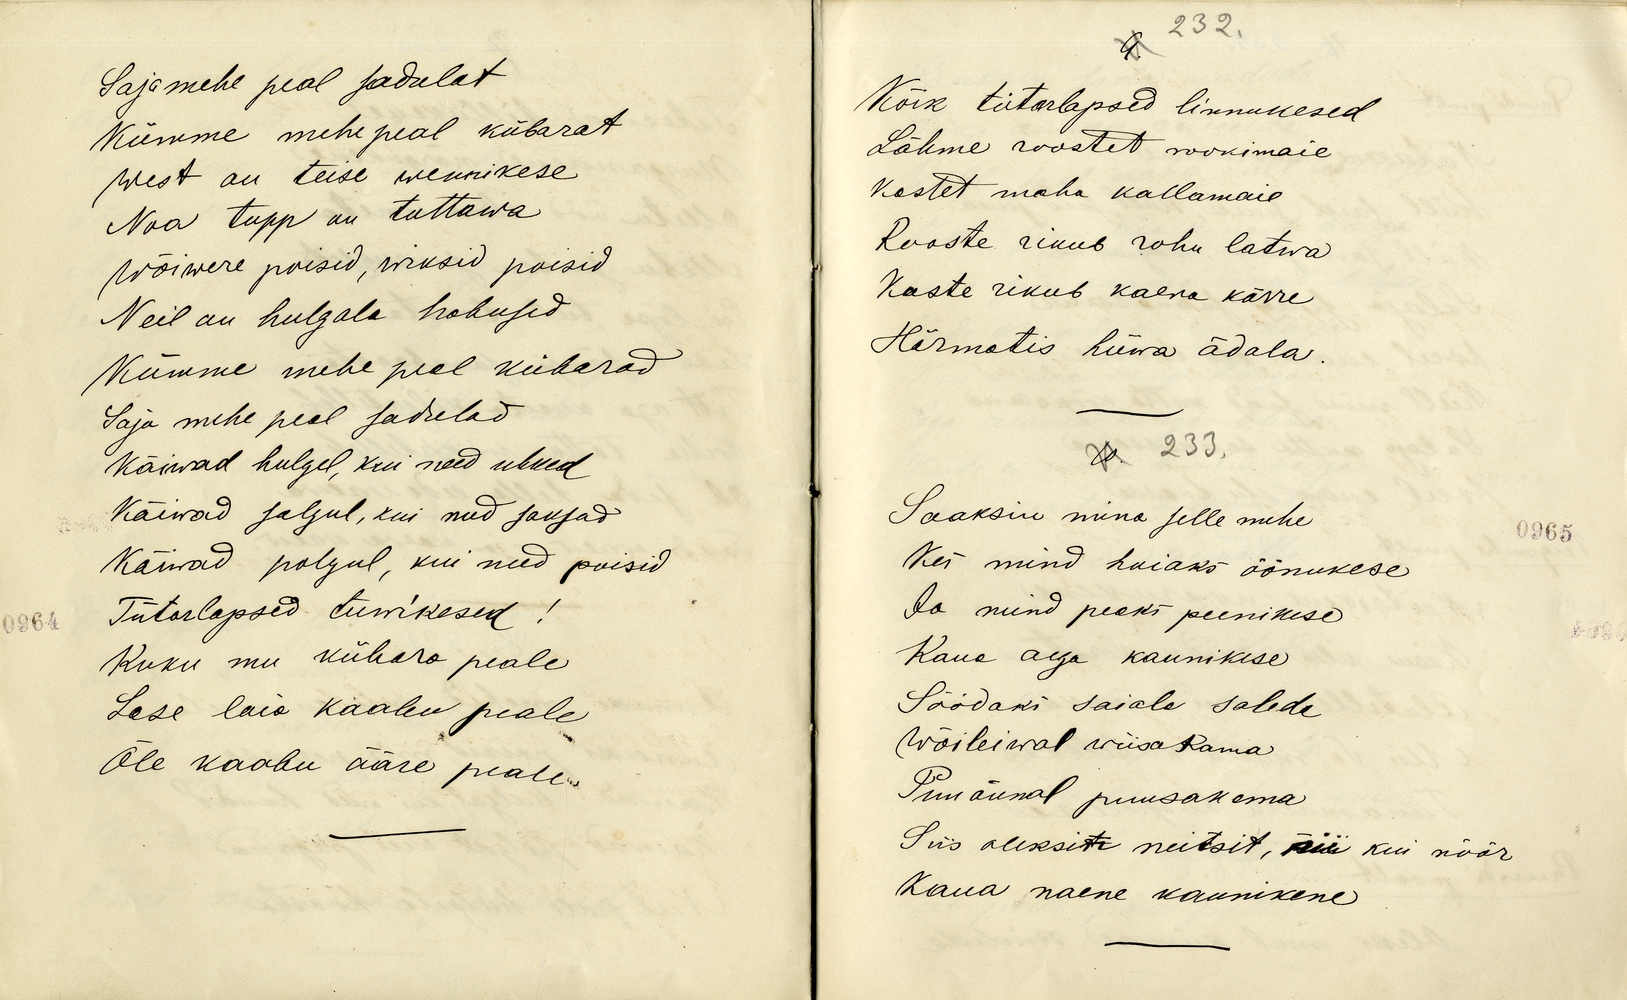 Saja mehe peal sadulat
Kümme mehe peal kübarat
West on teise wennikese
Noa tupp on tuttawa
Wõiwere poisid, wiksid poisid
Neil on hulgala hobused
Kümme mehe peal kübarad
Saja mehe peal sadulad
Käiwad hulgel, kui need uhked
Käiwad salgul, kui need saksad
Käiwad polgul, kui need poisid
Tütarlapsed tuwikesed!
Kuku mu kübara peale
Lase laia kaabu peale
Öle kaabu ääre peale.
0964
232.
Kõik tütarlapsed linnukesed
Lähme roostet rookimaie
Kastet maha kallamaie
Rooste rikub rohu latwa
Kaste rikub kaera kõrre
Härmatis hüwa ädala.
233.
Saaksin mina selle mehe
Kes mind hoiaks öönukese
Ja mind peaks peenikese
Kaua aega kaunikese
Söödaks saiala saleda
Wõileiwal wiisakama
Puuõunal puusakama
Siis oleksin neitsit, kui nöör
Kaua naene kaunikene
0965